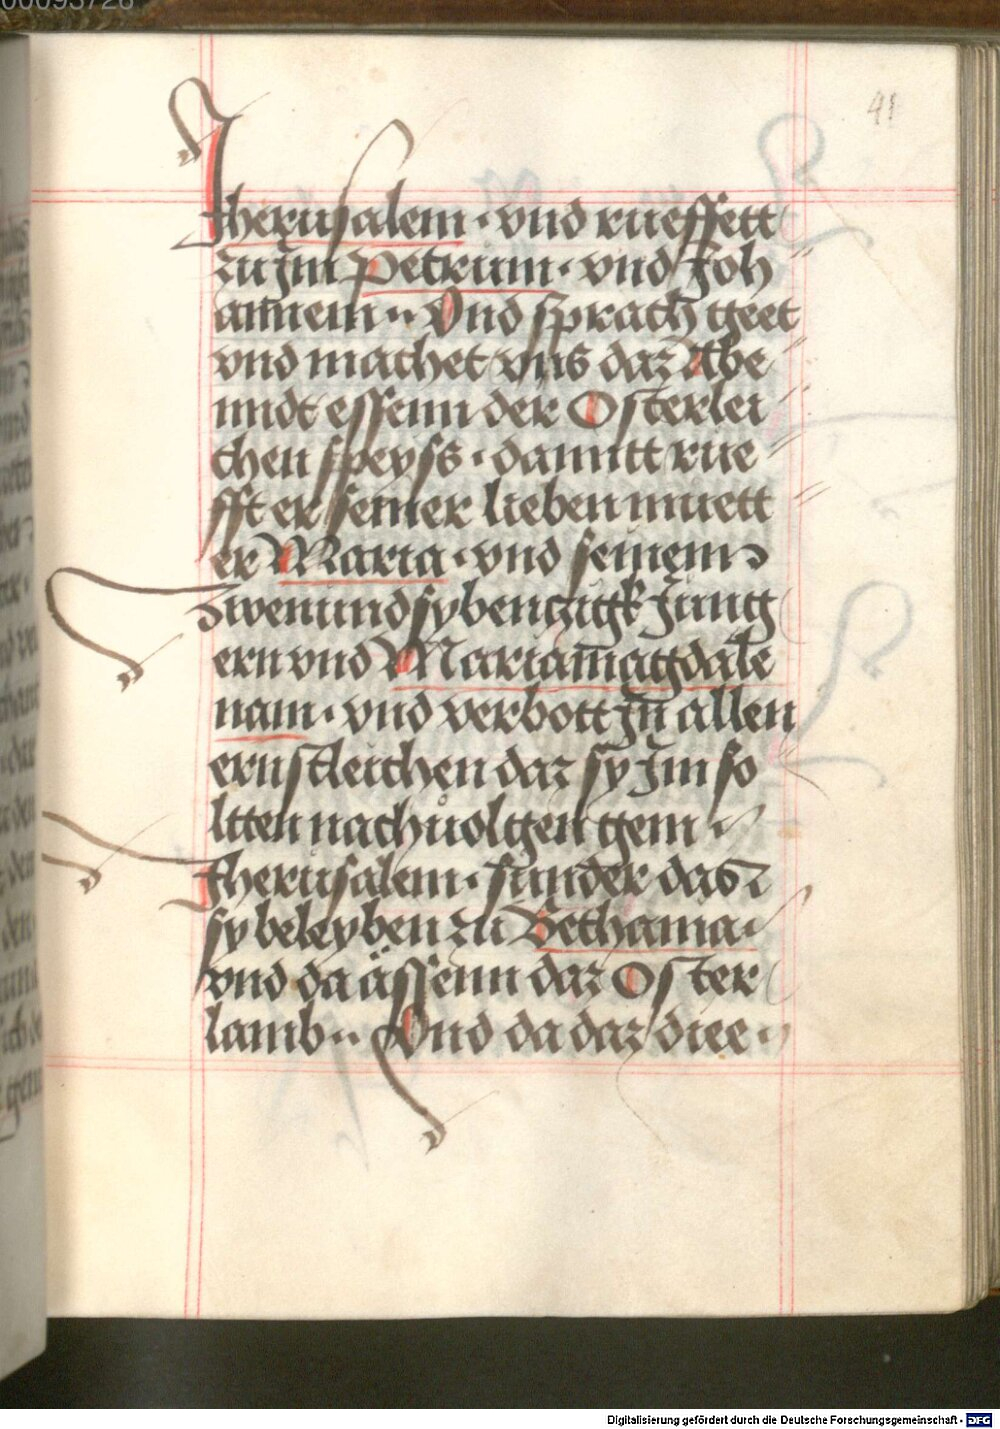 00093726
41
Jherusalem · vnd rueffett
zu Jm Petrum · vnd Joh
annem ·· Vnd sprach geet
vnd machet vns daz Abe
nndt essenn der Osterlei
chen speyss · damitt rue
fft er seiner lieben muett
er Maria · vnd seinem
Zwenundsybenzigk Jung
ern vnd Mariam̅agdale
nam · vnd verbott Jn̅ allen
ernstleichen daz sy Jm so
ltten nachuolgen gem
Jherusalem · sunder das
sy beleyben zu Bethania ·
vnd da ässenn daz Oster
lamb ·· Vnd da daz diee ·
Digitalisierung gefördert durch die Deutsche Forschungsgemeinschaft - DFG